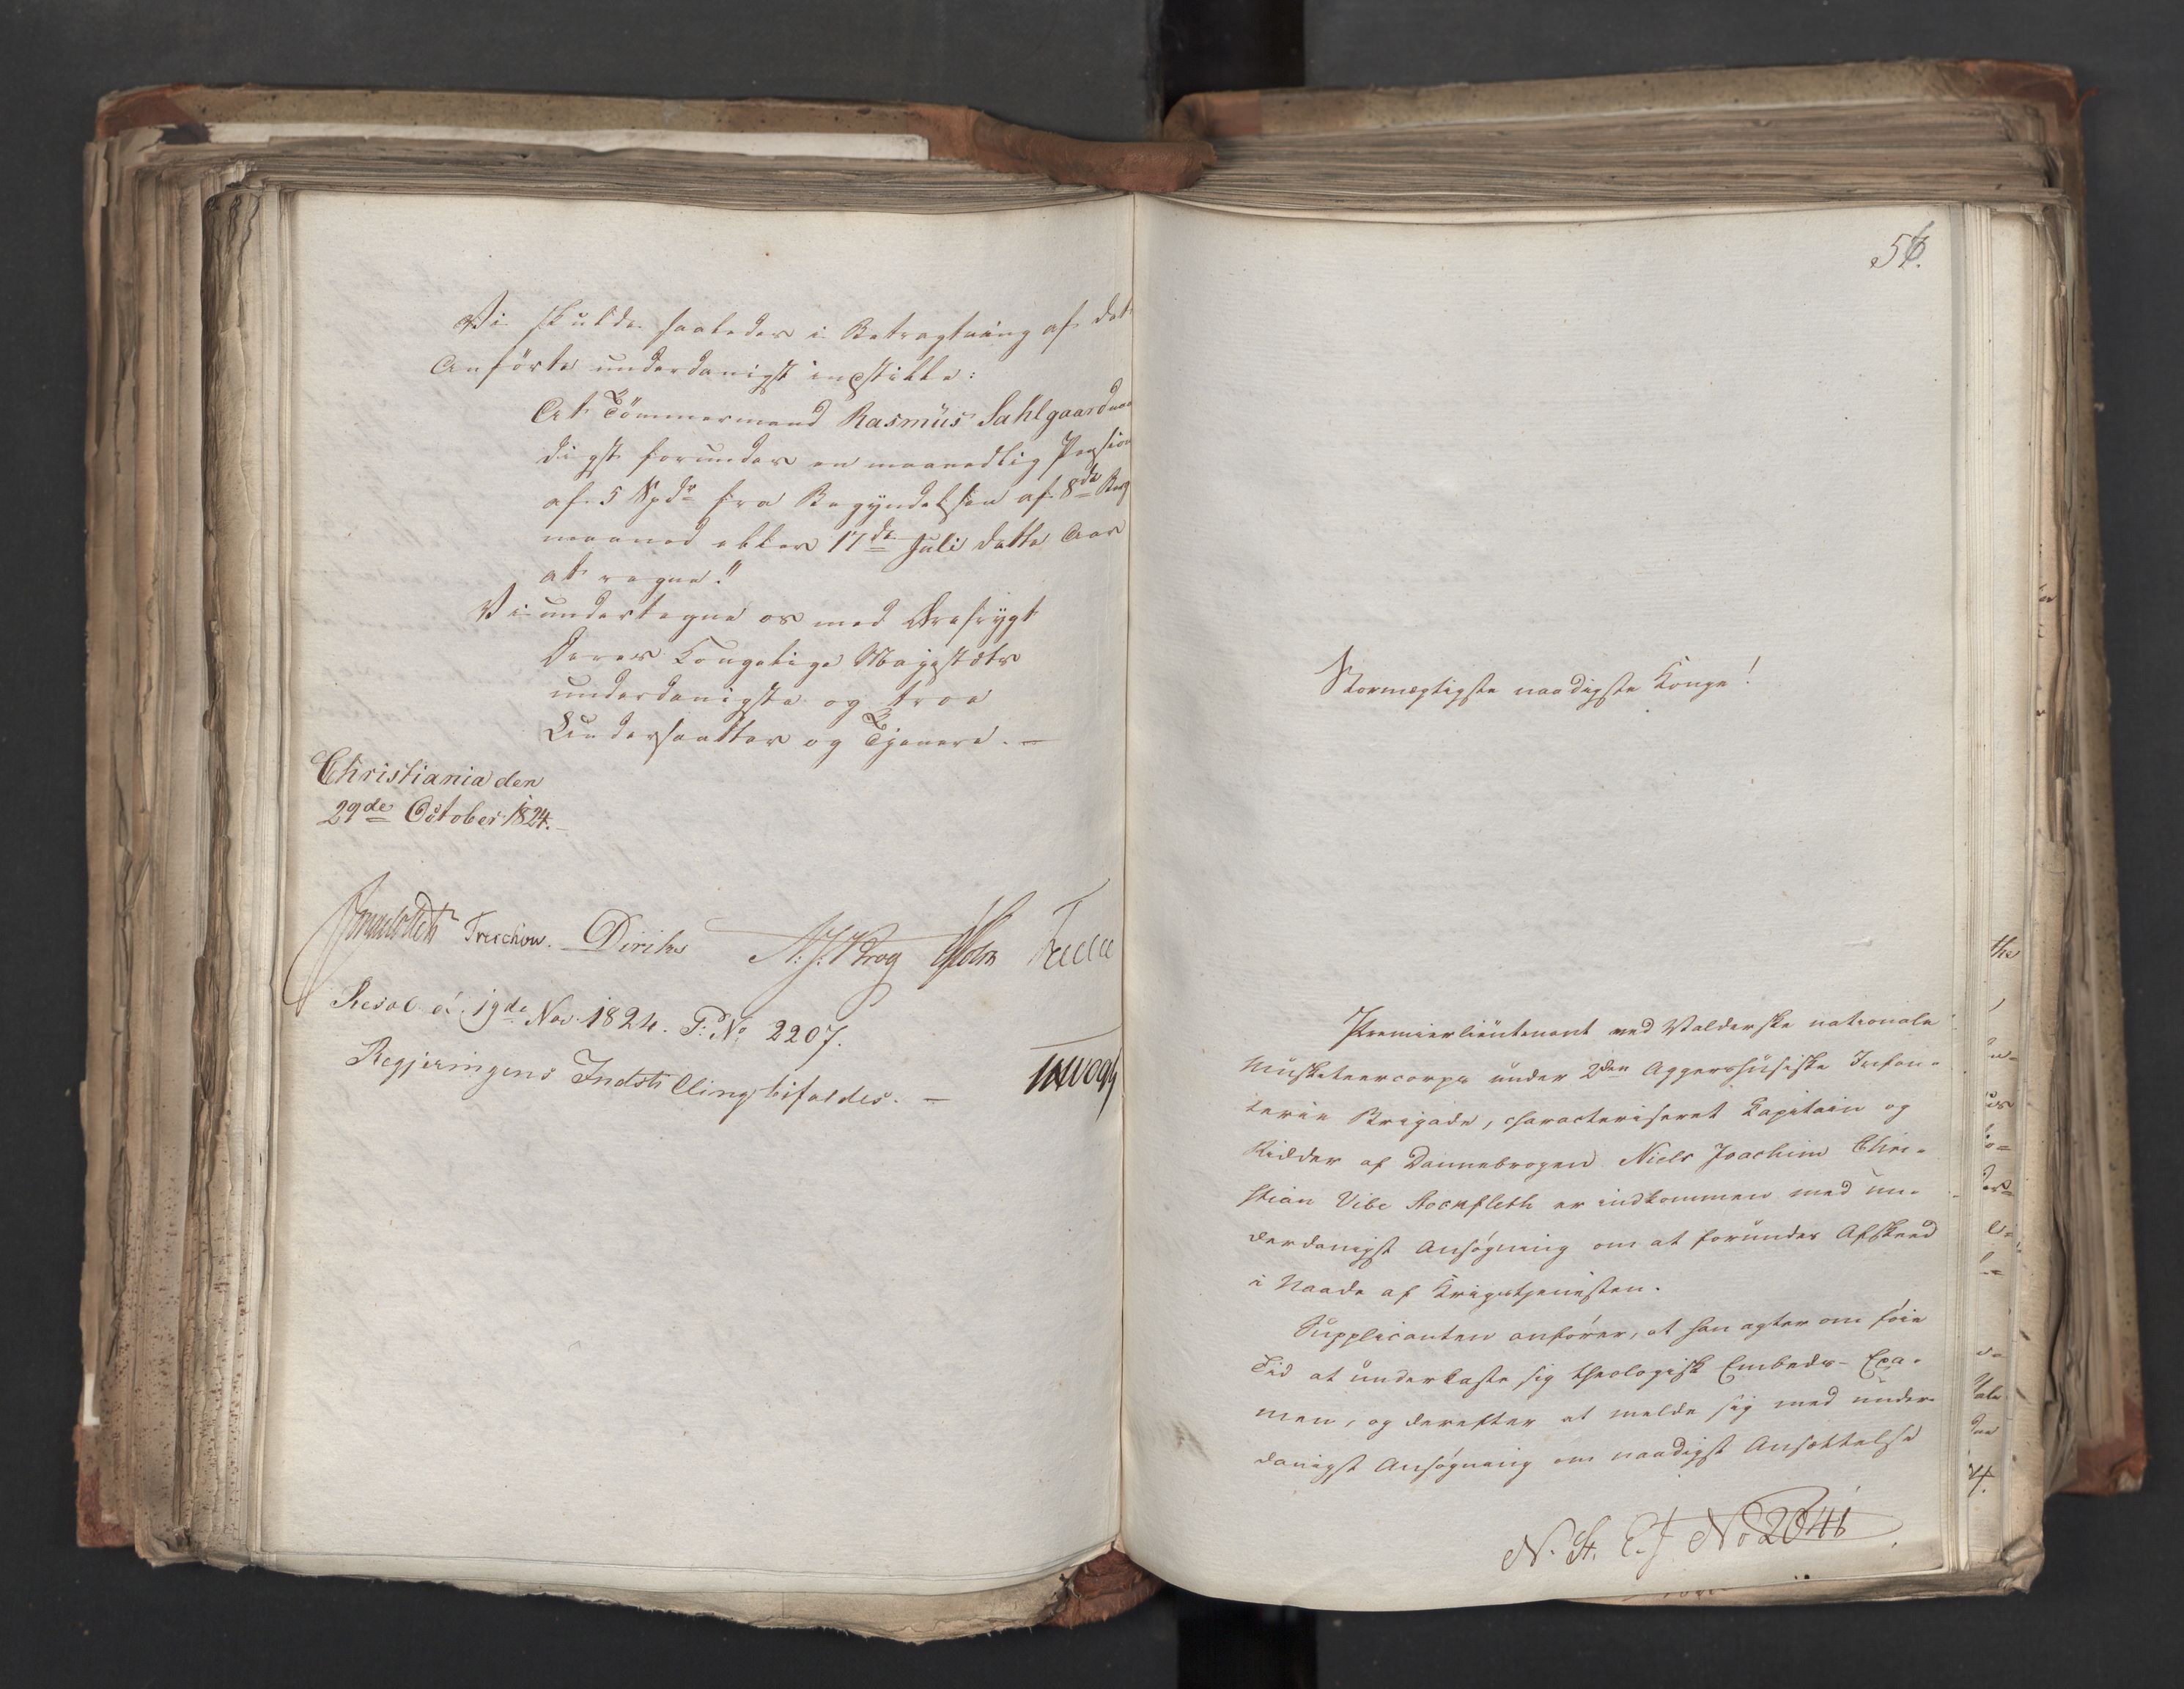 Vi skulde saaledes i Betragtning af det
Anförte underdanigst indstille:
At Tömmermand Rasmus Sahlgaard naa
digst forundes en maanedlig Pension
af 5 Spdr fra Begyndelsen af 8de Borg
maaned eller 17de Juli dette Aar
at regne."
Vi undertegne os med Ærefrygt
Deres Kongelige Majestæts
underdanigste og troe
Undersaatter og Tjenere. —
Christiania den
29de October 1824.
Treschow. Diriks N. J. Krog Holm
Resol. d. 19de Nov. 1824. P: No 2207.
Regjeringens Indstilling bifaldes. —
56.
Stormægtigste naadigste Konge!
Premierlieutenant ved Valderske nationale
Musketeercorps under 2den Aggershusiske Infan-
terie Brigade, characteriseret Kapitain og
Ridder af Dannebrogen Niels Joachim Chri-
stian Vibe Stockfleth er indkommen med un-
derdanigst Ansøgning om at forundes Afskeed
i Naade af Krigstjenesten.
Supplicanten anfører, at han agter om føie
Tid at underkaste sig theologisk Embeds-Exa-
men, og derefter at melde sig med under-
danigst Ansøgning om naadigst Ansættelse
N. St. E. J No 2041